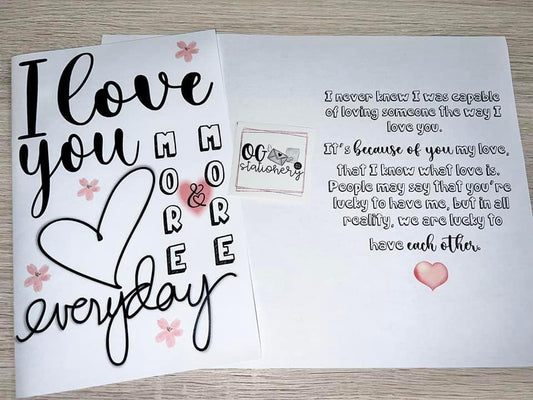 I love
you
MORE
&
MORE
everyday
OG
stationery
I never knew I was capable
of loving someone the way I
love you.
It's because of you my love,
that I know what love is.
People may say that you're
lucky to have me, but in all
reality, we are lucky to
have each other.